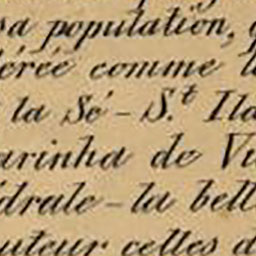 sa population,
érée comme
la Sé - S.t Ila
arinha de Vi
drale - la bell
uteur celles d